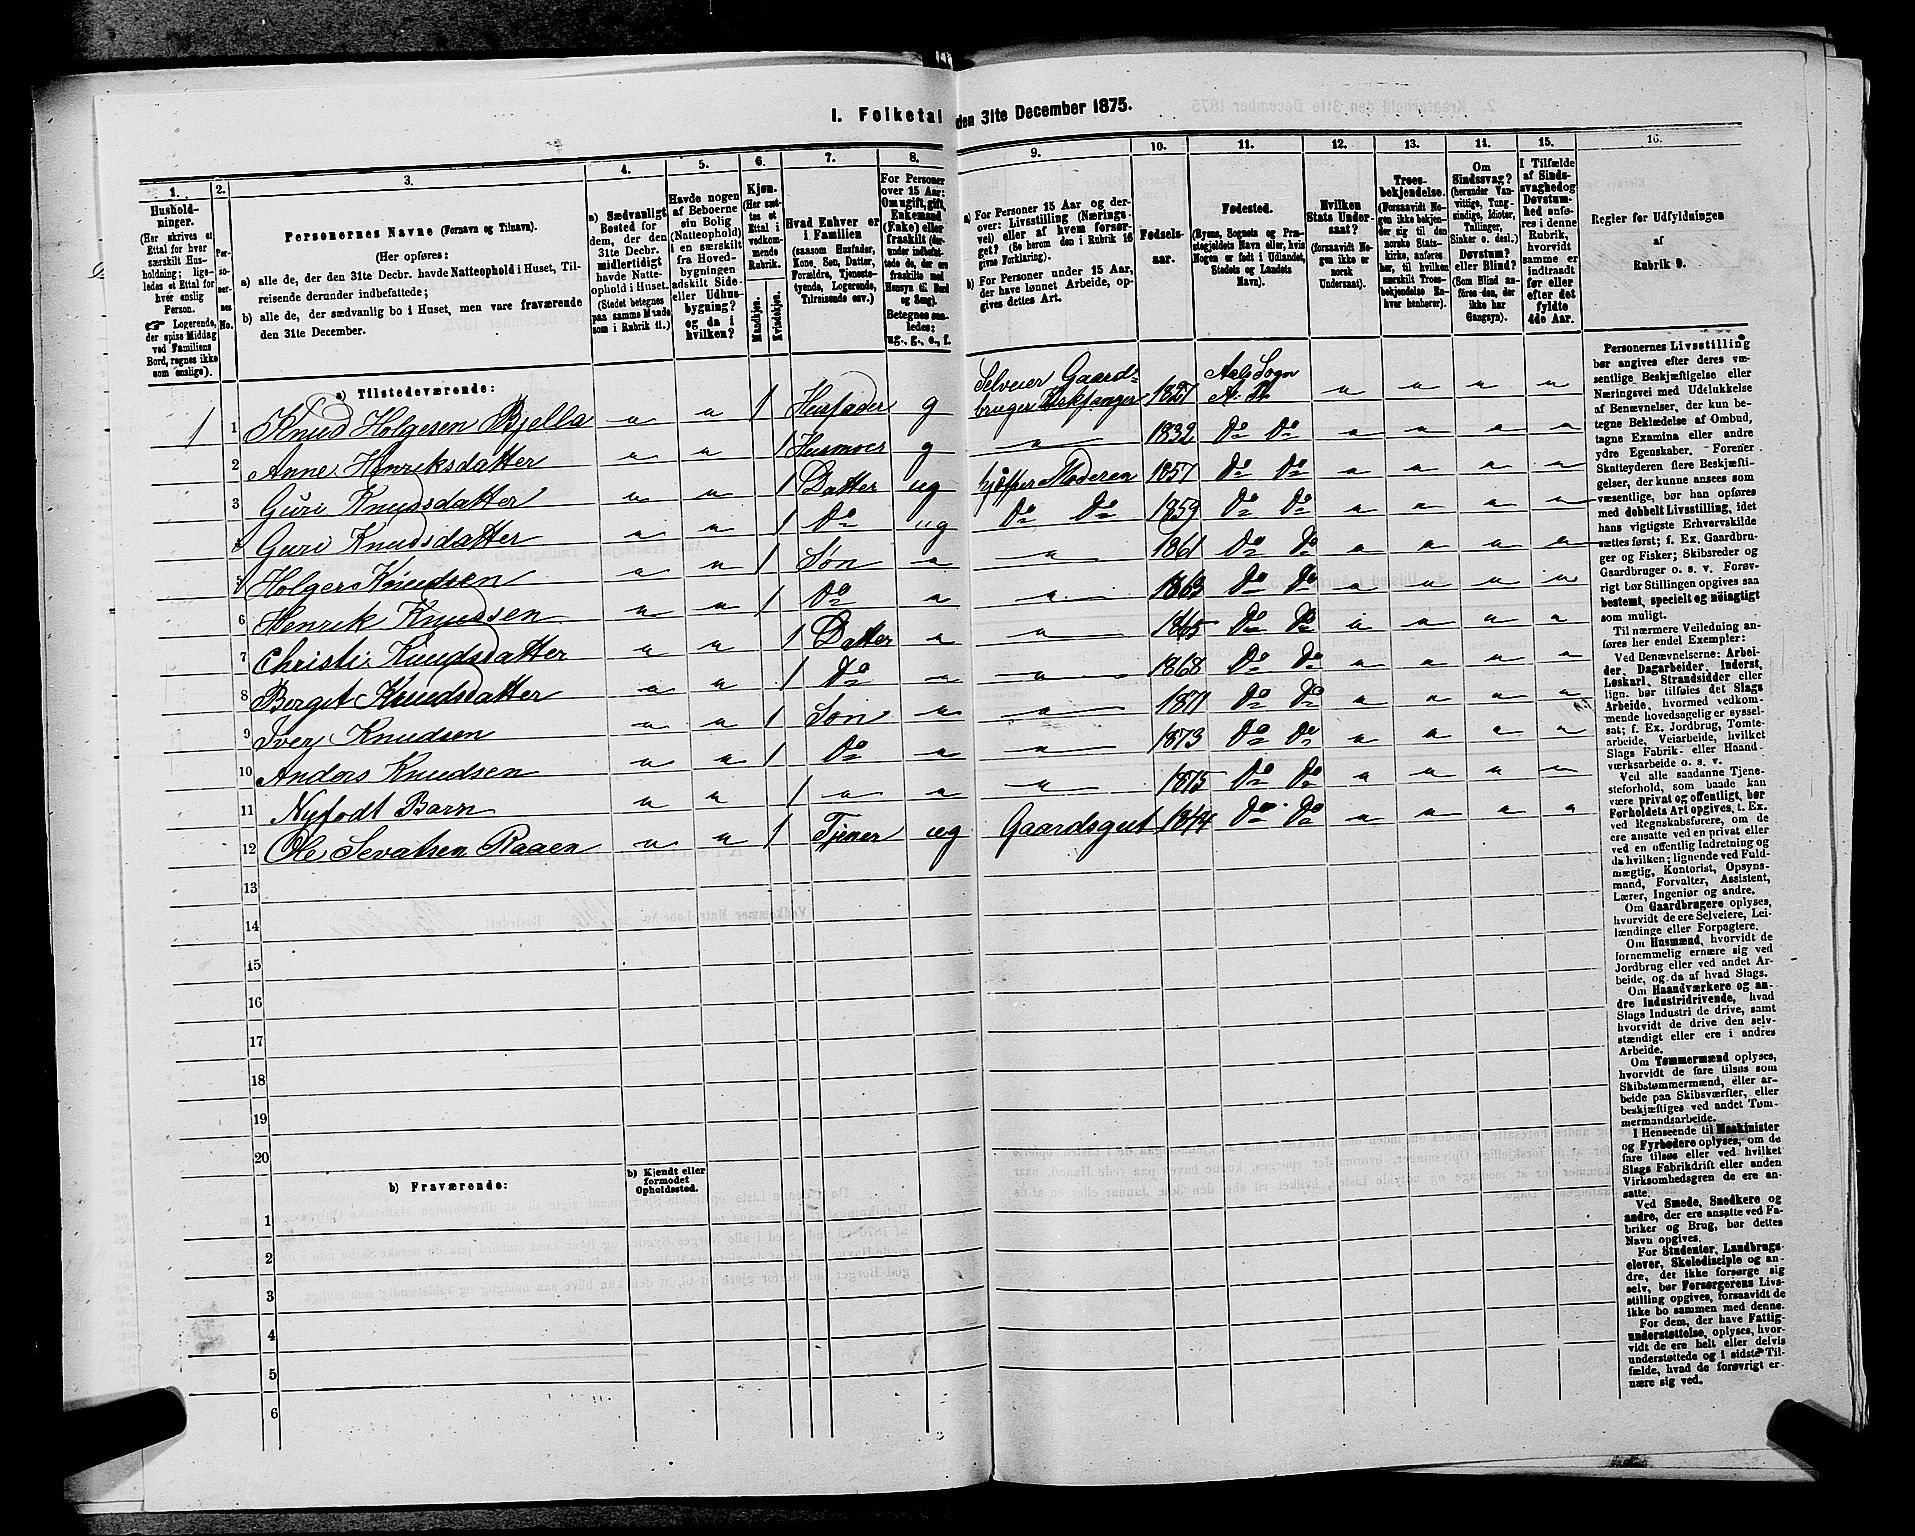 I. Folketal den 31te December 1875.
1. 2. 3. 4. 5. 6. 7. 8. 9. 10. 11. 12. 13. 14. 15. 16.
Hushold-
ninger.
(Her skrives et
Ettal for hver
særskilt Hus-
holdning; lige-
ledes et Ettal for
hver enslig
Person.
☞ Logerende,
der spise Middag
ved Familiens
Bord, regnes ikke
som enslige).
Per-
so-
ner-
nes
No.
Personernes Navne (Fornavn og Tilnavn).
(Her opføres:
a) alle de, der den 31te Decbr. havde Natteophold i Huset, Til-
reisende derunder indbefattede;
b) alle de, der sædvanlig bo i Huset, men vare fraværende
den 31te December.
a) Sædvanligt
Bosted for
dem, der den
31te Decbr.
midlertidigt
havde Natte-
ophold i Huset.
(Stedet betegnes
paa samme Maade
som i Rubrik 11.)
Havde nogen
af Beboerne
sin Bolig
(Natteophold)
i en særskilt
fra Hoved-
bygningen
adskilt Side-
eller Udhus-
bygning?
og da i
hvilken?
Kjøn.
(Her sæt-
tes et
Ettal i
vedkom-
mende
Rubrik.
Mandkjøn.
Kvindekjøn.
Hvad Enhver er
i Familien
(saasom Husfader,
Kone, Søn, Datter,
Forældre, Tjeneste-
tyende, Logerende,
Tilreisende osv.)
For Personer
over 15 Aar:
Om ugift, gift,
Enkemand
(Enke) eller
fraskilt (der-
under indbefat-
tede de, der ere
fraskilte med
Hensyn til Bord
og Seng).
Betegnes saa-
ledes:
ug., g., e., f.
a) For Personer 15 Aar og der-
over: Livsstilling (Nærings-
vei) eller af hvem forsør-
get? (Se herom den i Rubrik 16
givne Forklaring).
b) For Personer under 15 Aar,
der have lønnet Arbeide, op-
gives dettes Art.
Fødsels-
aar.
Fødested.
(Byens, Sognets og Præ-
stegjeldets Navn eller, hvis
Nogen er født i Udlandet,
Stedets og Landets
Navn).
Hvilken
Stats Under-
saat?
(forsaavidt No-
gen ikke er
norsk
Undersaat).
Troes-
bekjendelse.
(Forsaavidt No-
gen ikke bekjen-
der sig til den
norske Stats-
kirke, anføres
her, til hvilken
særskilt Troes-
bekjendelse En-
hver henhører).
Om
Sindssvag?
(herunder Van-
vittige, Tung-
sindige, Idioter,
Tullinger,
Sinker o. desl.)
Døvstum?
eller Blind?
(Som Blind an-
føres den, der
ikke har
Gangsyn).
I Tilfælde
af Sinds-
svaghed og
Døvstum-
hed anfø-
res i denne
Rubrik,
hvorvidt
samme er
indtraadt
før eller
efter det
fyldte
4de Aar.
Regler for Udfyldningen
af
Rubrik 9.
a) Tilstedeværende:
1 1 Knud Holgesen Bjella " " 1 Husfader g Selveier Gaard-bruger Kirksanger 1827 Aals Sogn A. P. " " " "
2 Anne Henriksdatter " " 1 Husmoer g " 1832 Do Do " " " "
3 Guri Knudsdatter " " 1 Datter ug hjælper Moderen 1857 Do Do " " " "
4 Guri Knudsdatter " " 1 Do ug Do Do 1859 Do Do " " " "
5 Holger Knudsen " " 1 Søn " " 1861 Do Do " " " "
6 Henrik Knudsen " " 1 Do " " 1863 Do Do " " " "
7 Christi Knudsdatter " " 1 Datter " " 1865 Do Do " " " "
8 Berget Knudsdatter " " 1 Do " " 1868 Do Do " " " "
9 Iver Knudsen " " 1 Søn " " 1871 Do Do " " " "
10 Anders Knudsen " " 1 Do " " 1873 Do Do " " " "
11 Nyfødt Barn " " 1 " " " 1875 Do Do " " " "
12 Ole Sevatsen Raaen " " 1 Tjener ug Gaardsgut Do Do " " " "
13
14
15
16
17
18
19
20
b) Fraværende:
b) Kjendt eller
formodet
Opholdssted.
1
2
3
4
5
6
Personernes Livsstilling
bør angives efter deres væ-
sentlige Beskjæftigelse eller
Næringsvei med Udelukkelse
af Benævnelser, der kun be-
tegne Beklædelse af Ombud,
tagne Examina eller andre
ydre Egenskaber. Forener
Skatteyderen flere Beskjæfti-
gelser, der kunne ansees som
væsentlige, bør han opføres
med dobbelt Livsstilling, idet
hans vigtigste Erhvervskilde
sættes først; f. Ex. Gaardbru-
ger og Fisker; Skibsreder og
Gaardbruger o. s. v. Forøv-
rigt bør Stillingen opgives saa
bestemt, specielt og nøiagtigt
som muligt.
Til nærmere Veiledning an-
føres her endel Exempler:
Ved Benævnelserne: Arbei-
der, Dagarbeider, Inderst,
Løskarl, Strandsidder eller
lign. bør tilføies det Slags
Arbeide, hvormed vedkom-
mende hovedsagelig er syssel-
sat; f. Ex. Jordbrug, Tømte-
arbeide, Veiarbeide, hvilket
Slags Fabrik- eller Haand-
værksarbeide o. s. v.
Ved alle saadanne Tjene-
steforhold, som baade kan
være privat og offentligt, bør
Forholdets Art opgives, t. Ex.
ved Regnskabsførere, om de
ere ansatte ved en privat eller
ved en offentlig Indretning og
da hvilken; lignende ved Fuld-
mægtig, Kontorist, Opsyns-
mand, Forvalter, Assistent,
Lærer, Ingeniør og andre.
Om Gaardbrugere oplyses,
hvorvidt de ere Selveiere, Lei-
lændinge eller Forpagtere.
Om Husmænd, hvorvidt de
fornemmelig ernære sig ved
Jordbrug eller ved andet Ar-
beide, og da af hvad Slags.
Om Haandværkere og an-
dre Industridrivende, hvad
Slags Industri de drive, samt
hvorvidt de drive den selv-
stændigt eller ere i andres
Arbeide.
Om Tømmermænd oplyses,
hvorvidt de fare tilsøs som
Skibstømmermænd, eller ar-
beide paa Skibsværfter, eller
beskjæftiges ved andet Tøm-
mermandsarbeide.
I Henseende til Maskinister
og Fyrbødere oplyses, om de
fare tilsøs eller ved hvilket
Slags Fabrikdrift eller anden
Virksomhedsgren de ere an-
satte.
Ved Smede, Snedkere og
andre, der ere ansatte ved Fa-
briker og Brug, bør dettes
Navn opgives.
For Studenter, Landbrugs-
elever, Skoledisciple og an-
dre, der ikke forsørge sig
selv, bør Forsørgerens Livs-
stilling opgives, forsaavidt de
ikke bo sammen med denne.
For dem, der have Fattig-
understøttelse, oplyses, hvor-
vidt de ere helt eller delvis
understøttede og i sidste Til-
fælde, hvad de forøvrigt er-
nære sig ved.